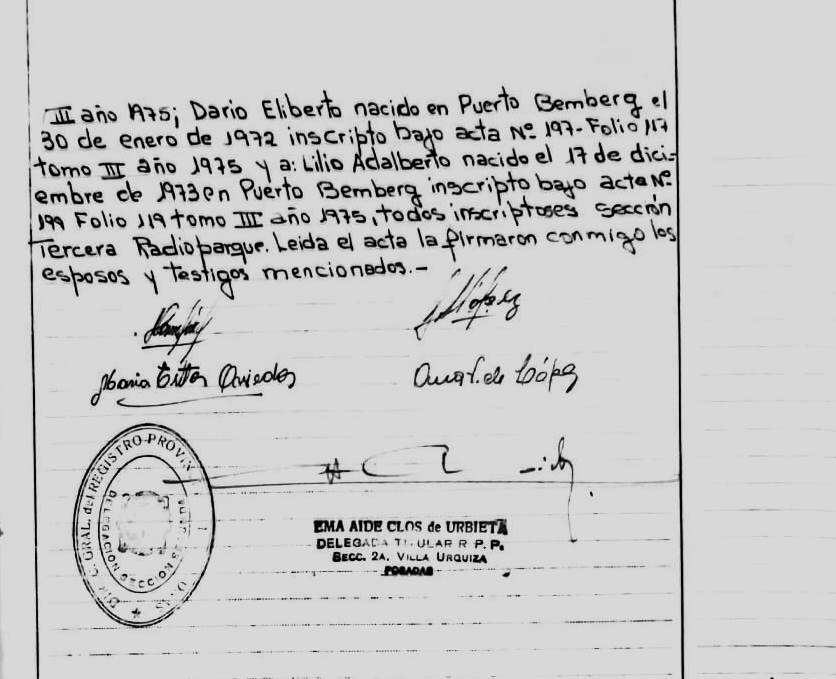 III año 1975; Dario Eliberto nacido en Puerto Bemberg el
30 de enero de 1972 inscripto bajo acta Nº 197-Folio 117
tomo III año 1975 y a: Lilio Adalberto nacido el 17 de dici-
embre de 1973 en Puerto Bemberg inscripto bajo acta Nº
199 Folio 119 tomo III año 1975, todos inscriptoses sección
Tercera Radioparque. Leida el acta la firmaron conmigo los
esposos y testigos mencionados.-
López
Maria Ester Oviedo
de López
GRAL. del REGISTRO PROV
DELEGACION SECCION
EMA AIDE CLOS de URBIETA
DELEGADA TITULAR R. P. P.
SECC. 2A. VILLA URQUIZA
POSADAS